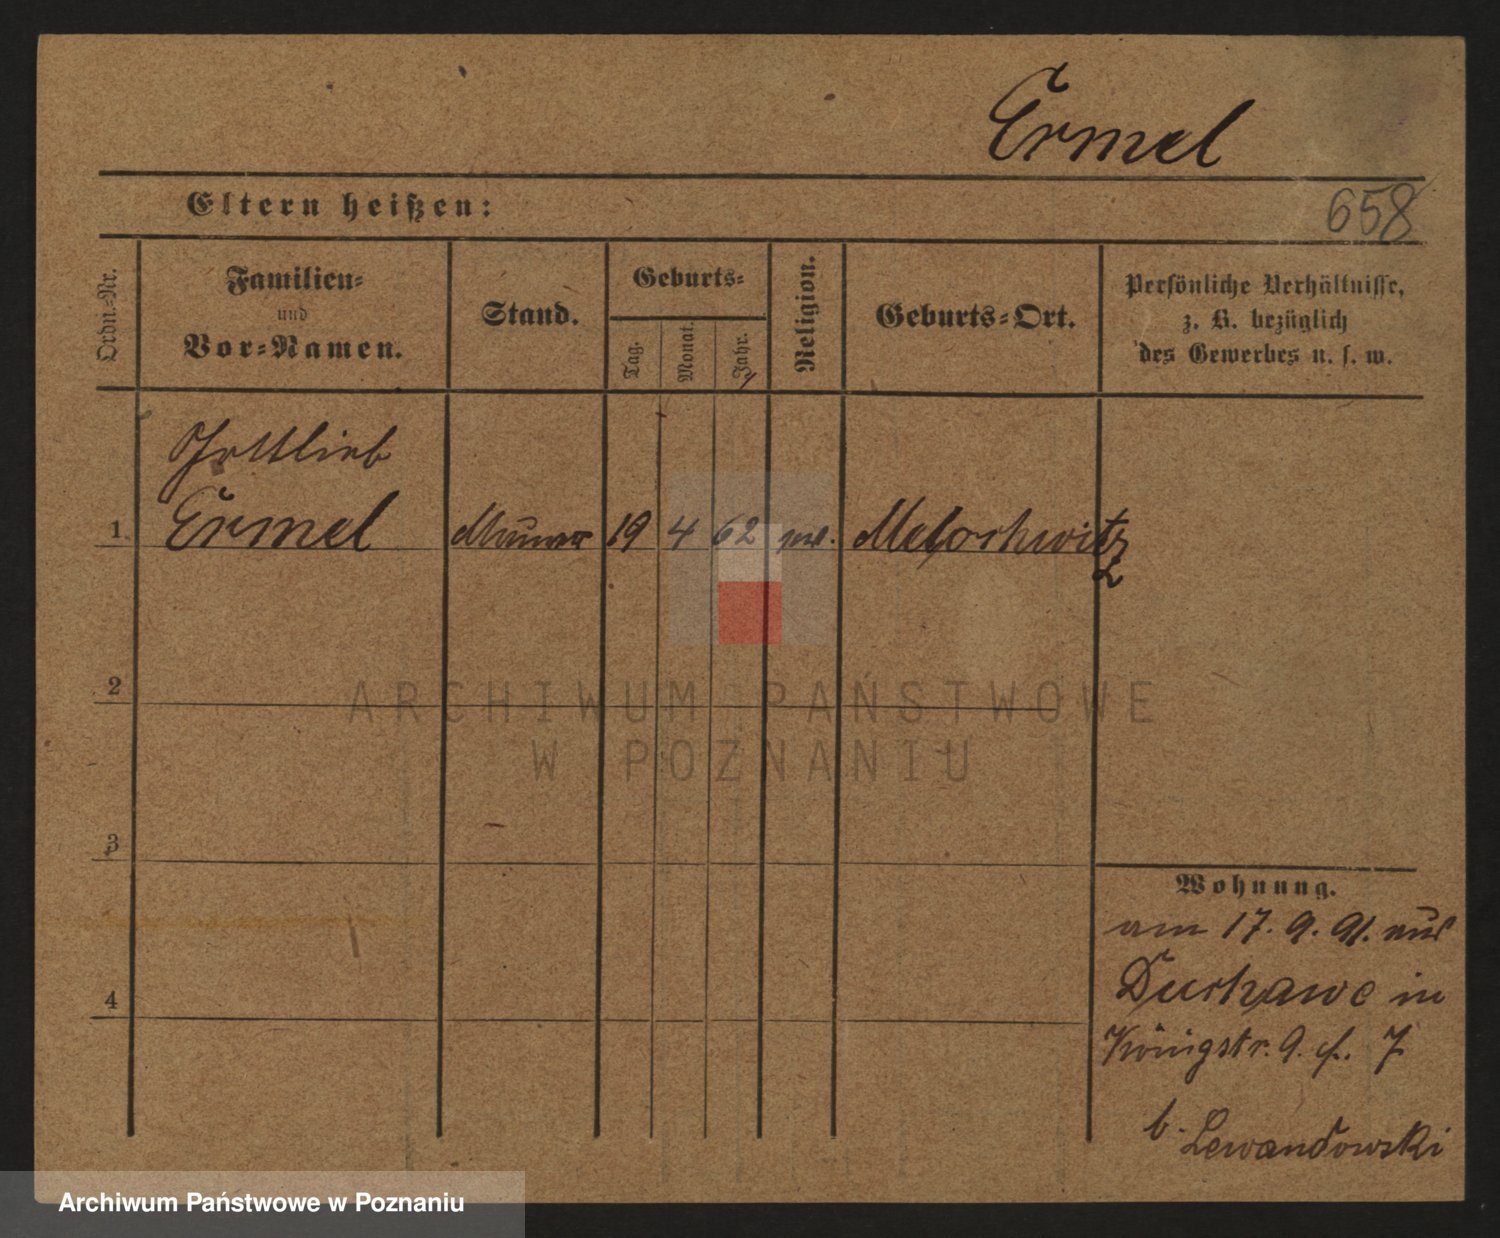 Ermel
Eltern heißen:
658
Ordn.-Nr.
Familien-
und
Vor-Namen.
Stand.
Geburts-
Tag.
Monat.
Jahr.
Religion.
Geburts-Ort.
Persönliche Verhältnisse,
z. B. bezüglich
des Gewerbes u. s. w.
Gottlieb
1 Ermel Maurer 19 4 62
2
3
4
Wohnung.
am 17. 9. 91. aus
in
Königstr. 9. 7
b. Lewandowski
ARCHIWUM PAŃSTWOWE
W POZNANIU
Archiwum Państwowe w Poznaniu